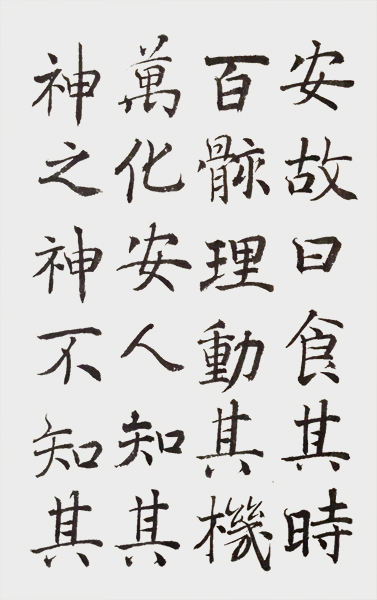 安故曰食其時
百骸理動其機
萬化安人知其
神之神不知其